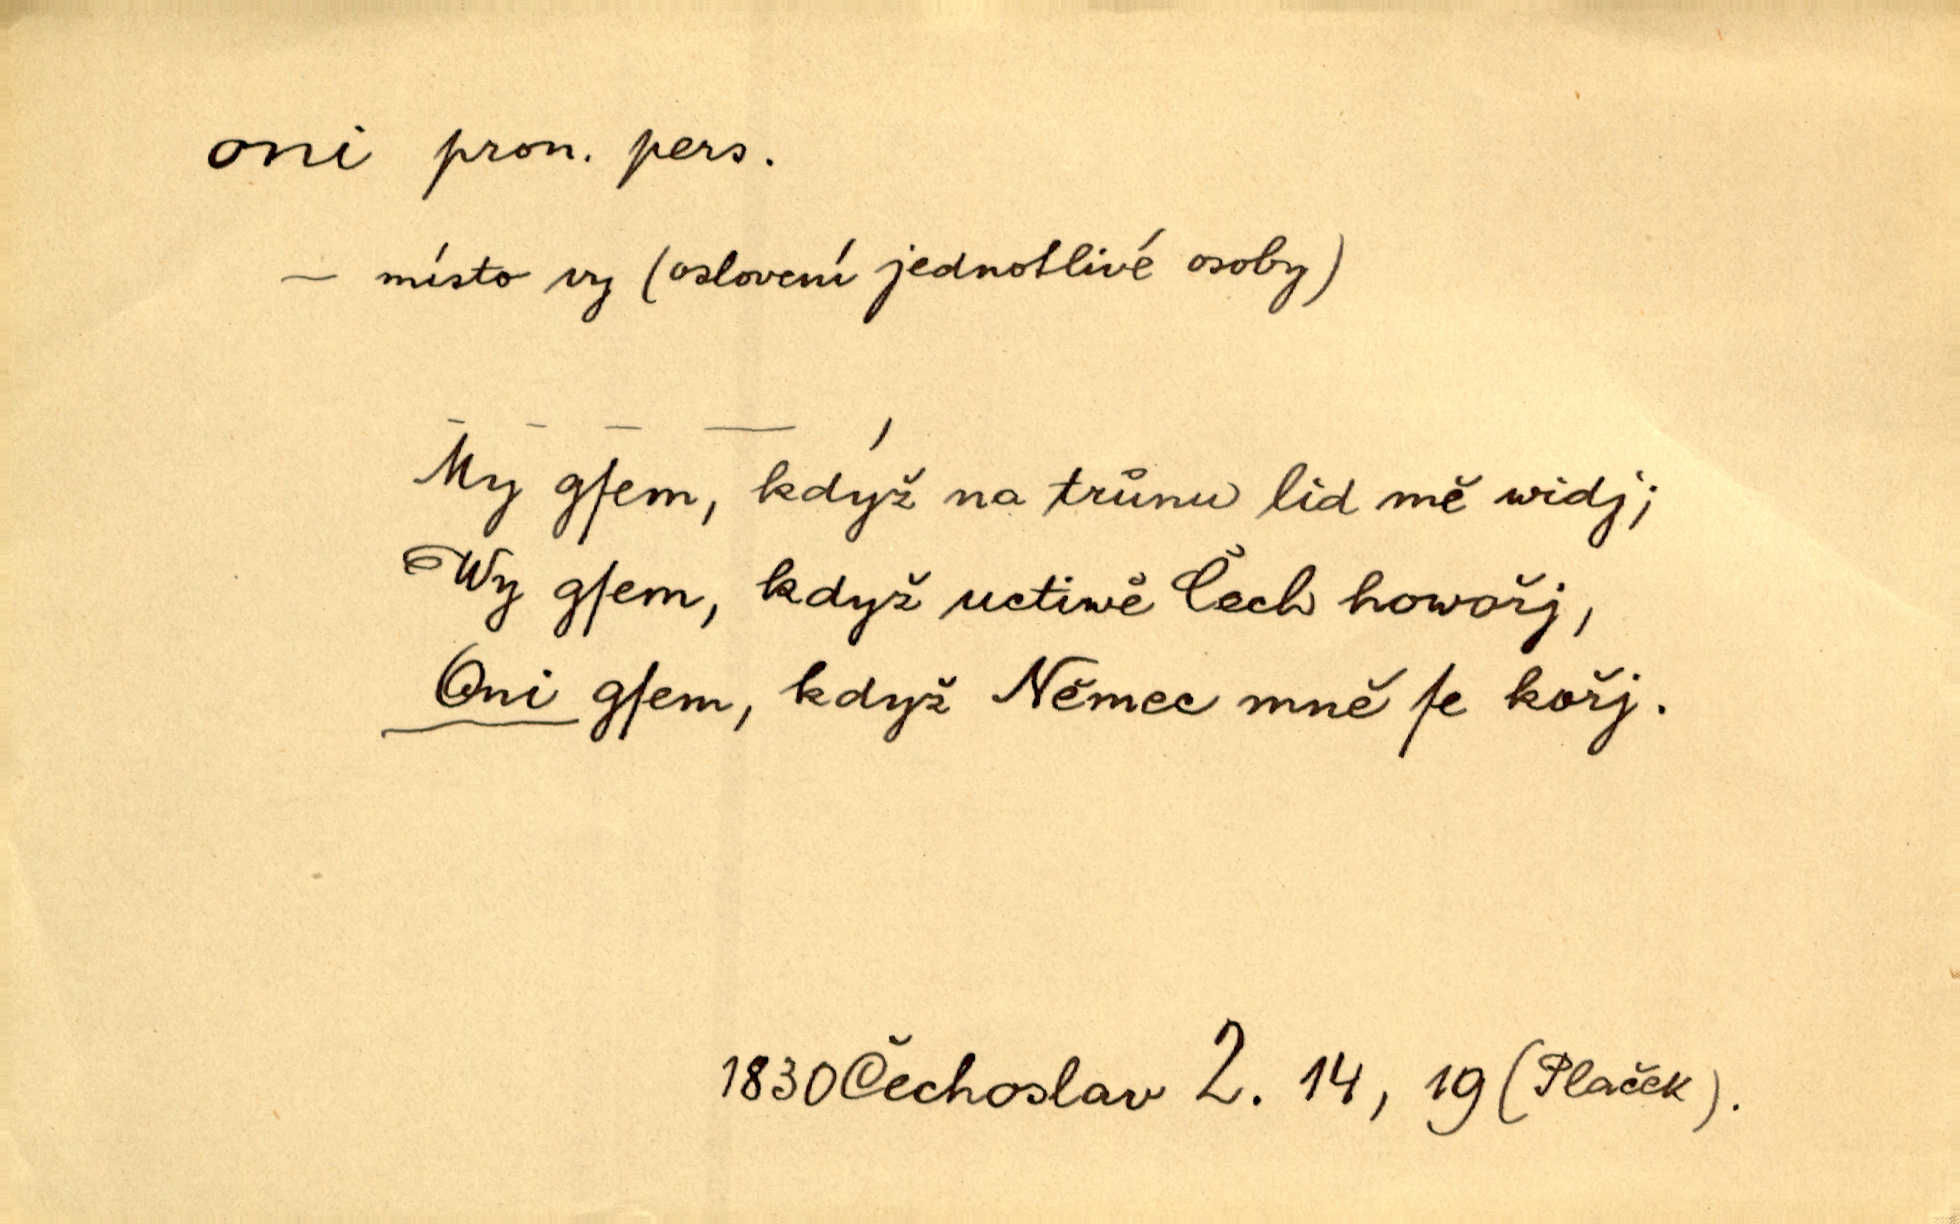 oni pron. pers.
— místo vy (oslovení jednotlivé osoby)
– – – —
My gſem, když na trůnu lid mě widj;
Wy gſem, když uctiwě Čech howořj,
Oni gſem, když Němec mně ſe kořj.
1830 Čechoslav 2. 14, 19 (Plaček).